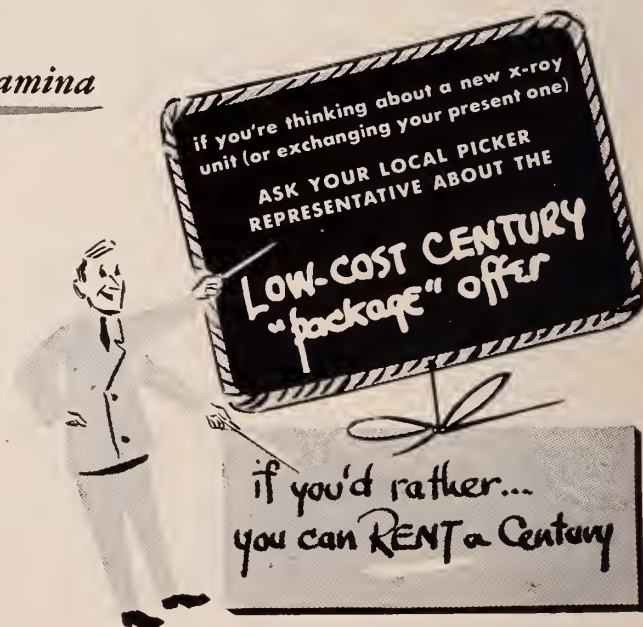 amina
if you're thinking about a new x-roy
unit (or exchanging your present one)
ASK YOUR LOCAL PICKER
REPRESENTATIVE ABOUT THE
LOW-COST CENTURY
"package" offer
if you'd rather...
you can RENT a Century